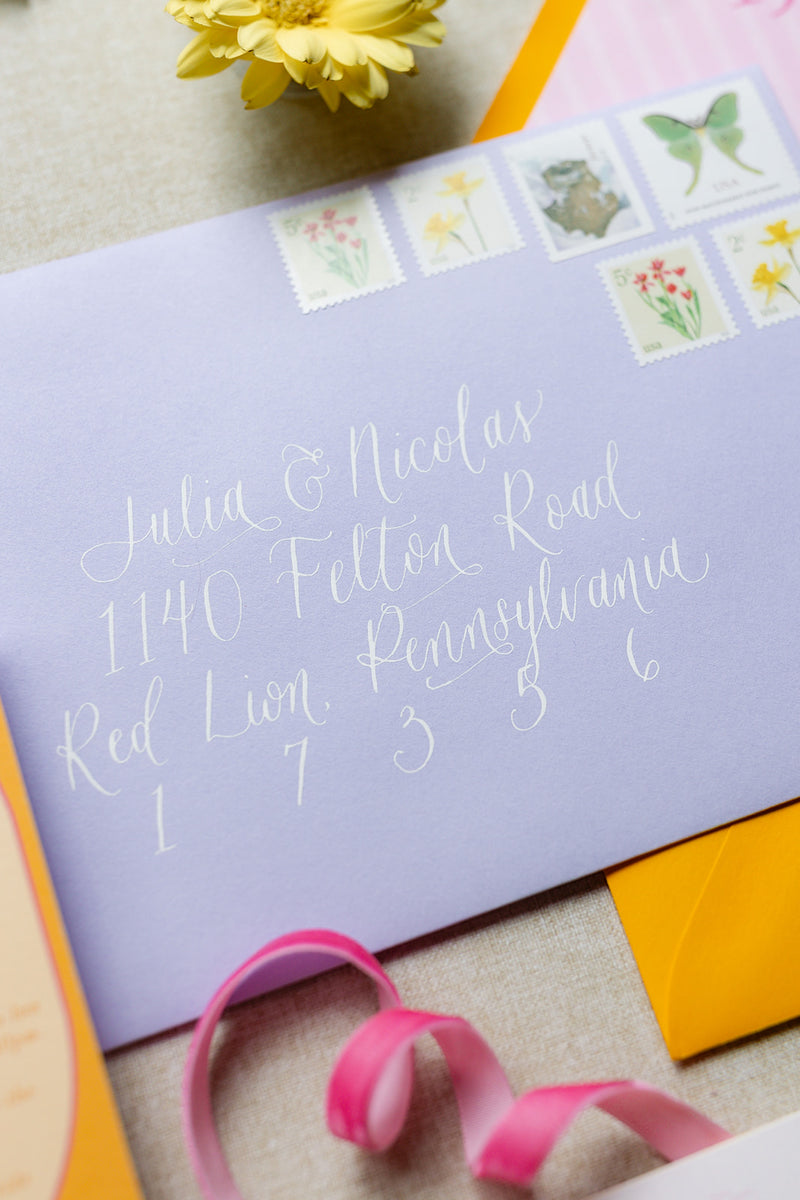 5c
USA
2c
USA
USA
5c
USA
2c
USA
Julia & Nicolas
1140 Felton Road
Red Lion, Pennsylvania
1 7 3 5 6